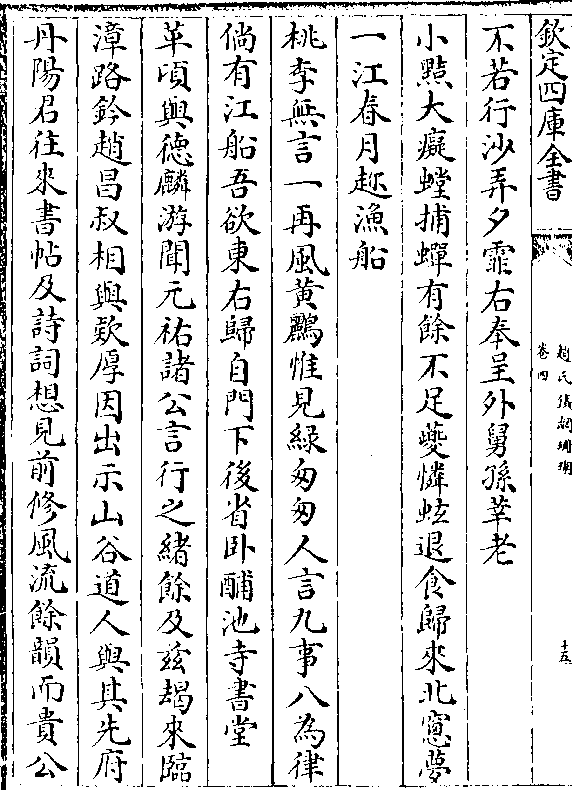 欽定四庫全書
趙氏鐵網珊瑚
卷四
十五
不若行沙弄夕霏右奉呈外舅孫莘老
小黠大癡螳捕蟬有餘不足夔憐蚿退食歸來北窻夢
一江春月趂漁船
桃李無言一再風黄鸝惟見緑匆匆人言九事八為律
倘有江船吾欲東右歸自門下後省卧酺池寺書堂
革頃與德麟游聞元祐諸公言行之緒餘及兹朅來臨
漳路鈐趙昌叔相與欵厚因出示山谷道人與其先府
丹陽君往來書帖及詩詞想見前修風流餘韻而貴公